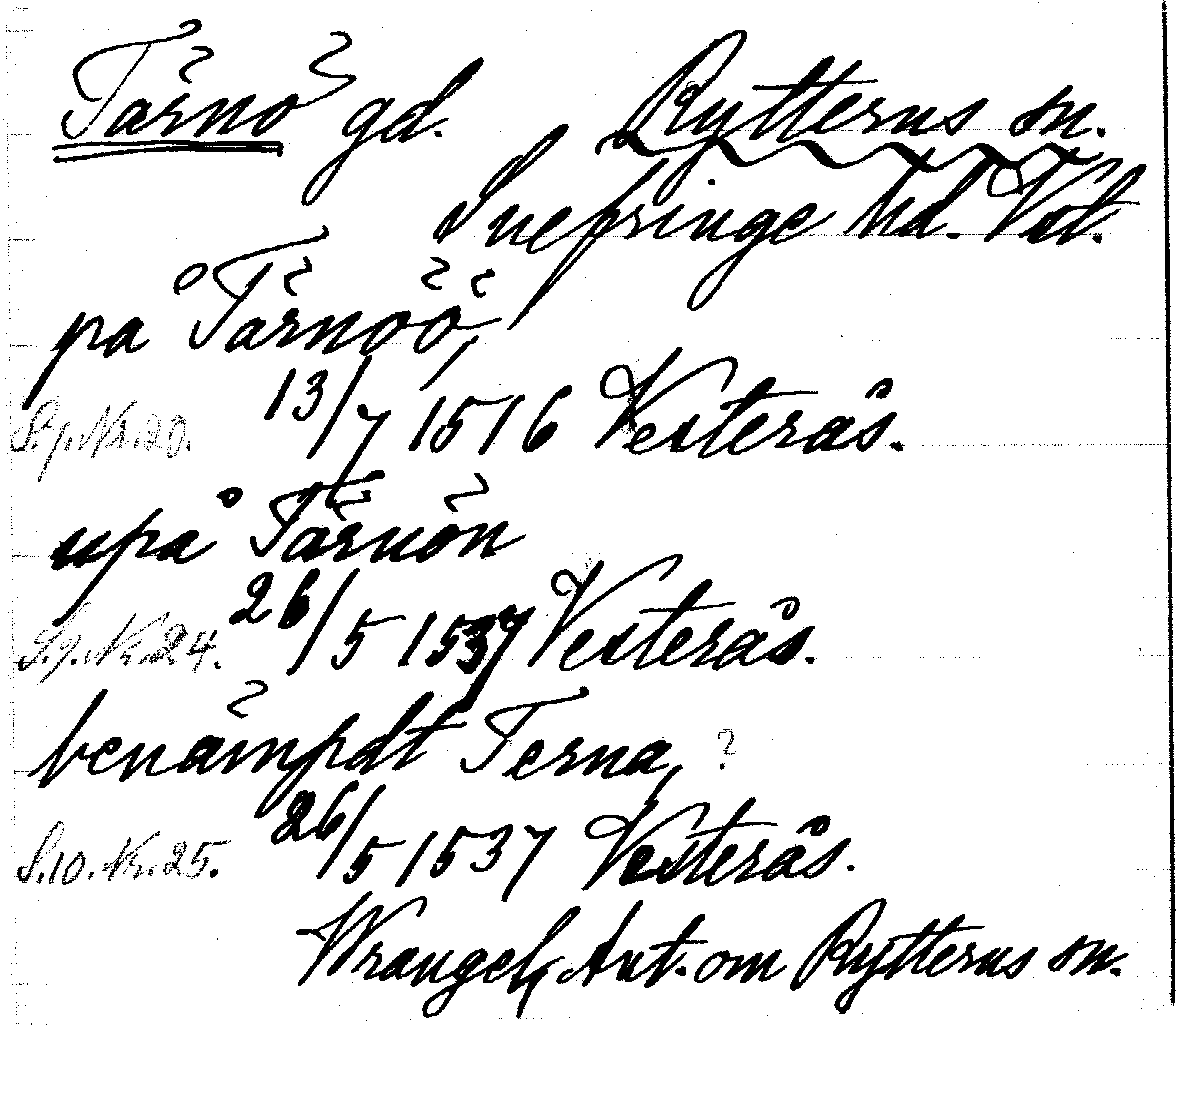 Tärnö gd. Rytterns sn.
Snefringe hd. Vstl.
på Tärnöö,
S.9.Nr.20. 13/7 1516 Vesterås.
upå Tärnön
S.9.Nr.24. 26/5 1537 Vesterås.
benämpdt Terna, ?
S.10.Nr.25. 26/5 1537 Vesterås.
Wrangel, Ant. om Rytterns sn.